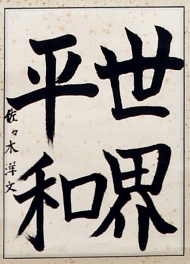 世界
平和
佐々木洋文